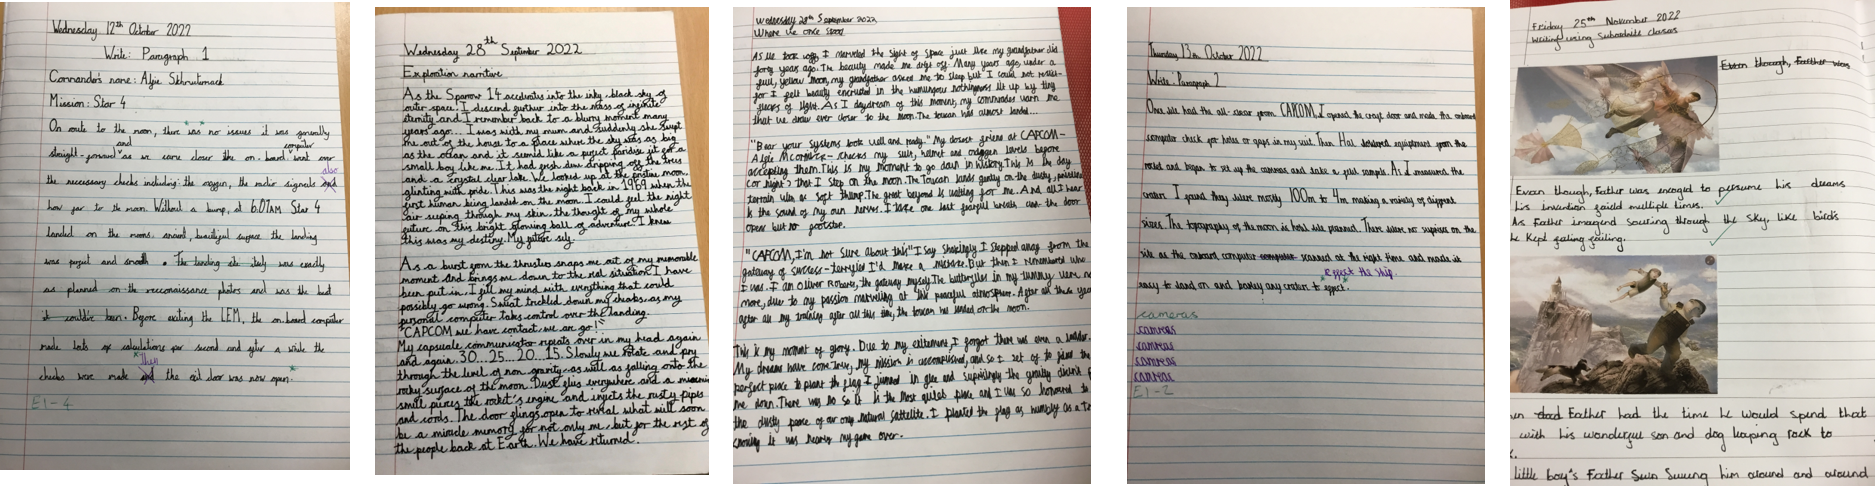 Wednesday 12th October 2022
Write: Paragraph 1
Commander's name: Algie Skhruitornack
Mission: Star 4
On route to the moon, there was no issues it was generally
straight-forward and as we came closer the on-board computer went over
the necessary checks including: the oxygen, the radio signals and also
how far to the moon. Without a bump, at 6:07AM Star 4
landed on the moons ancient, beautiful surface the landing
was perfect and smooth. The landing site itely was exactly
as planned on the reconnaissance photos and was the best
it could've been. Before exiting the LEM, the on-board computer
made lots of calculations per second and after a while the
checks were made and then the exit door was now open.
E1-4
Wednesday 28th September 2022
Exploration narrative
As the Sparrow 14 accelerates into the inky, black sky of
outer space! I descend further into the mass of infinite
eternity and I remember back to a blurry moment many
years ago... I was with my mum and suddenly she swept
me out of the house to a place where the sky was as big
as the ocean and it seemed like a perfect paradise for a
small boy like me. It had fresh dew dripping off the trees
and a crystal clear lake. We looked up at the entire moon,
glinting with pride. This was the night back in 1969 when the
first human being landed on the moon. I could feel the night
air seeping through my skin, the thought of my whole
future on this bright glowing ball of adventure. I knew
this was my destiny. My future self.
As a burst from the thrusters snaps me out of my memorable
moment and brings me down to the real situation I have
been put in. I fill my mind with everything that could
possibly go wrong. Sweat trickled down my cheeks as my
personal computer takes control over the landing.
"CAPCOM we have contact, we are go!"
My capsuale communicator repeats over in my head again
and again. 30...25...20...15. Slowly we rotate and pry
through the level of non gravity as well as falling onto the
rocky surface of the moon. Dust flies everywhere and a
smell pierces the rocket's engine and injects the rusty pipes
and cords. The door flings open to reveal what will soon
be a miracle memory for not only me, but for the rest of
the people back at Earth. We have returned.
Wednesday 28th September 2022
Where we once stood
As we took off, I marveled the sight of space just like my grandfather did
forty years ago. The beauty made me drift off. Many years ago, under a
full, yellow moon, my grandfather asked me to sleep but I could not resist-
for I felt beauty encrusted in the humungous nothingness lit up by tiny
flecks of light. As I daydream of this moment, my commander warn me
that we draw ever closer to the moon. The toucan has almost landed...
"Bear your systems look well and ready." My closest friend at CAPCOM-
Algie Mcormick- checks my suit, helmet and oxygen levels before
accepting them. This is my moment to go down in history. This is the day
(or night) that I step on the moon. The Toucan lands gently on the dusty,
terrain with a soft thump. The great beyond is waiting for me. And all I hear
is the sound of my own nerves. I take one last fearful breath and the door
opens but no footstep.
"CAPCOM, I'm not sure about this" I say shakingly. I stepped away from the
gateway of success- terrified I'd make a mistake. But then I remembered who
I was. I am Oliver Roberts, the gateway myself. The butterflies in my tummy were no
more, due to my passion marveling at this peaceful atmosphere. After all these years
after all my training after all this time, the toucan has landed on the moon.
This is my moment of glory. Due to my exitement, I forgot there was even a ladder.
My dreams have come true, my mission is accomplished, and so I set of to find the
perfect place to plant the flag. I jumped in glee and suprisingly the gravity didn't
me down. There was no so it is the most quiet place and I was so honoured to
the dusty peace of our only natural sattelite. I planted the flag as humbly as a
knowing it was nearly my game over.
Thursday 13th October 2022
Write: Paragraph 2
Once we had the all-clear from CAPCOM, I opened the craft door and made the onboard
computer check for holes or gaps in my suit. Then Hal delivered equipment from the
and began to set up the cameras and take a soil sample. As I measured the
craters I found they were mostly 100m to 4m making a variety of different
sizes. The topography of the moon is how we planned. There were no suprises on the
site as the onboard computer computer scanned at the right time and made it
easy to land on and destroy any craters to effect.
effect the ship.
cameras
cameras
cameras
cameras
cameras
cameras
E1-2
Friday 25th November 2022
Writing using Subordinate clauses
Evan though, Father was
Evan though, Father was encoged to persume his dreams
his invention faield multiple times.
As Father imagend souring through the sky, like birds
he kept faling failing.
dad Father had the time he would spend that
with his wonderful son and dog leaping rock to
little boy's Father swin swung him around and around